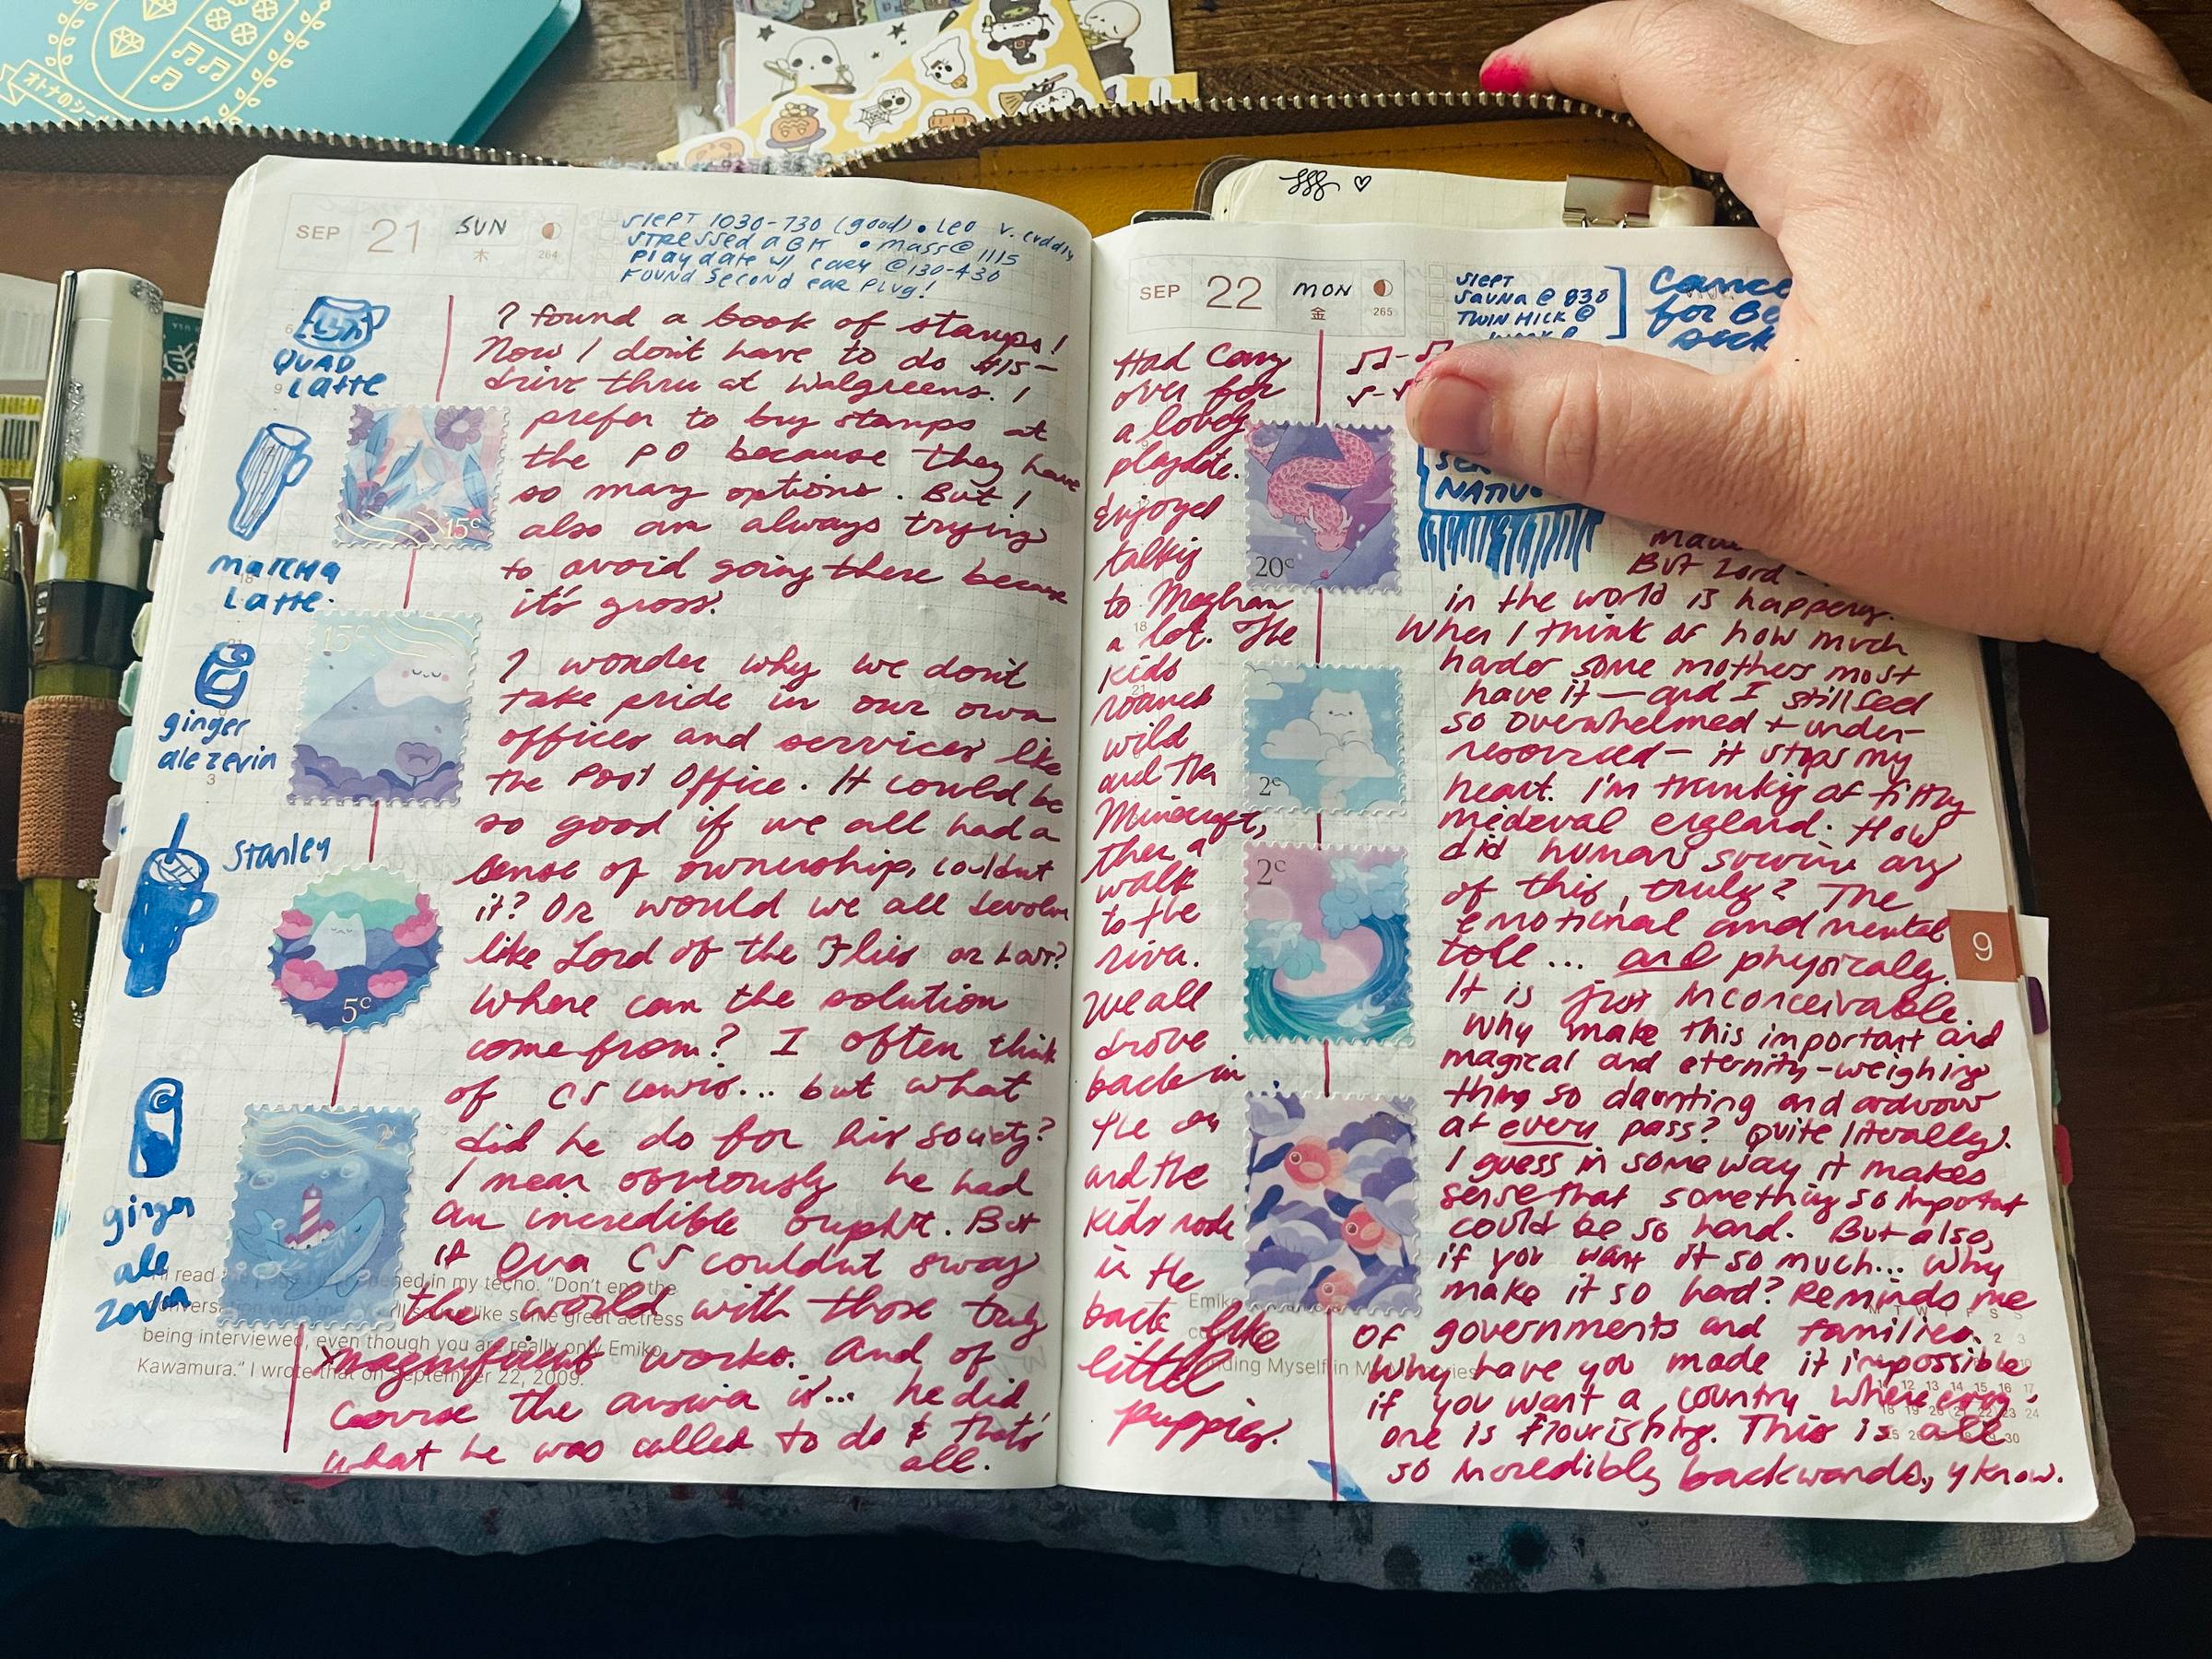 オトナのシー
SEP 21 SUN
木
264
Slept 1030-730 (good) • Leo v. cuddly
Stressed a bit • mass @ 1115
playdate w/ Cary @ 130-430
Found second ear plug!
QUAD
Latte
matcha
Latte.
ginger
ale zevia
Stanley
ginger
ale
zevia
I found a book of stamps!
Now I don't have to do $15-
drive thru at Walgreens. I
prefer to buy stamps at
the PO because they have
so many options. But I
also am always trying
to avoid going there because
it's gross.
I wonder why we don't
take pride in our own
offices and services like
the Post Office. It could be
so good if we all had a
sense of ownership, couldn't
it? Or would we all devolve
like Lord of the Flies or Lost?
Where can the solution
come from? I often think
of CS Lewis... but what
did he do for his society?
I mean obviously he had
an incredible output. But
if Ova CS couldn't sway
the world with those truly
magnificent works. And of
course the answer is... he did
what he was called to do & that's
all.
15c
15c
5c
2c
read in my techo. "Don't end the
conversation with me like some great actress
being interviewed, even though you are really only Emiko
Kawamura." I wrote that on September 22, 2009.
SEP 22 MON
金
265
Slept
Sauna @ 830
Twin Hick @
Had Cary
over for
a lovely
playdate.
Enjoyed
talking
to Meghan
a lot. The
kids
roamed
wild
and then
Minecraft,
then a
walk
to the
river.
We all
drove
back in
the
and the
kids rode
in the
back like
little
puppies.
20c
2c
2c
NATIV
But Lord
in the world is happening.
When I think of how much
harder some mothers most
have it — and I still feel
so overwhelmed + under-
resourced — it stops my
heart. I'm thinking of filthy
medieval england. How
did humans survive any
of this, truly? The
emotional and mental
toll ... and physically.
It is just inconceivable.
Why make this important and
magical and eternity-weighing
thing so daunting and arduous
at every pass? Quite literally.
I guess in some way it makes
sense that something so important
could be so hard. But also,
if you want it so much... Why
make it so hard? Reminds me
of governments and families.
Why have you made it impossible
if you want a country where every-
one is flourishing. This is all
so incredibly backwards, y'know.
9
Emiko
Finding Myself in My Memories